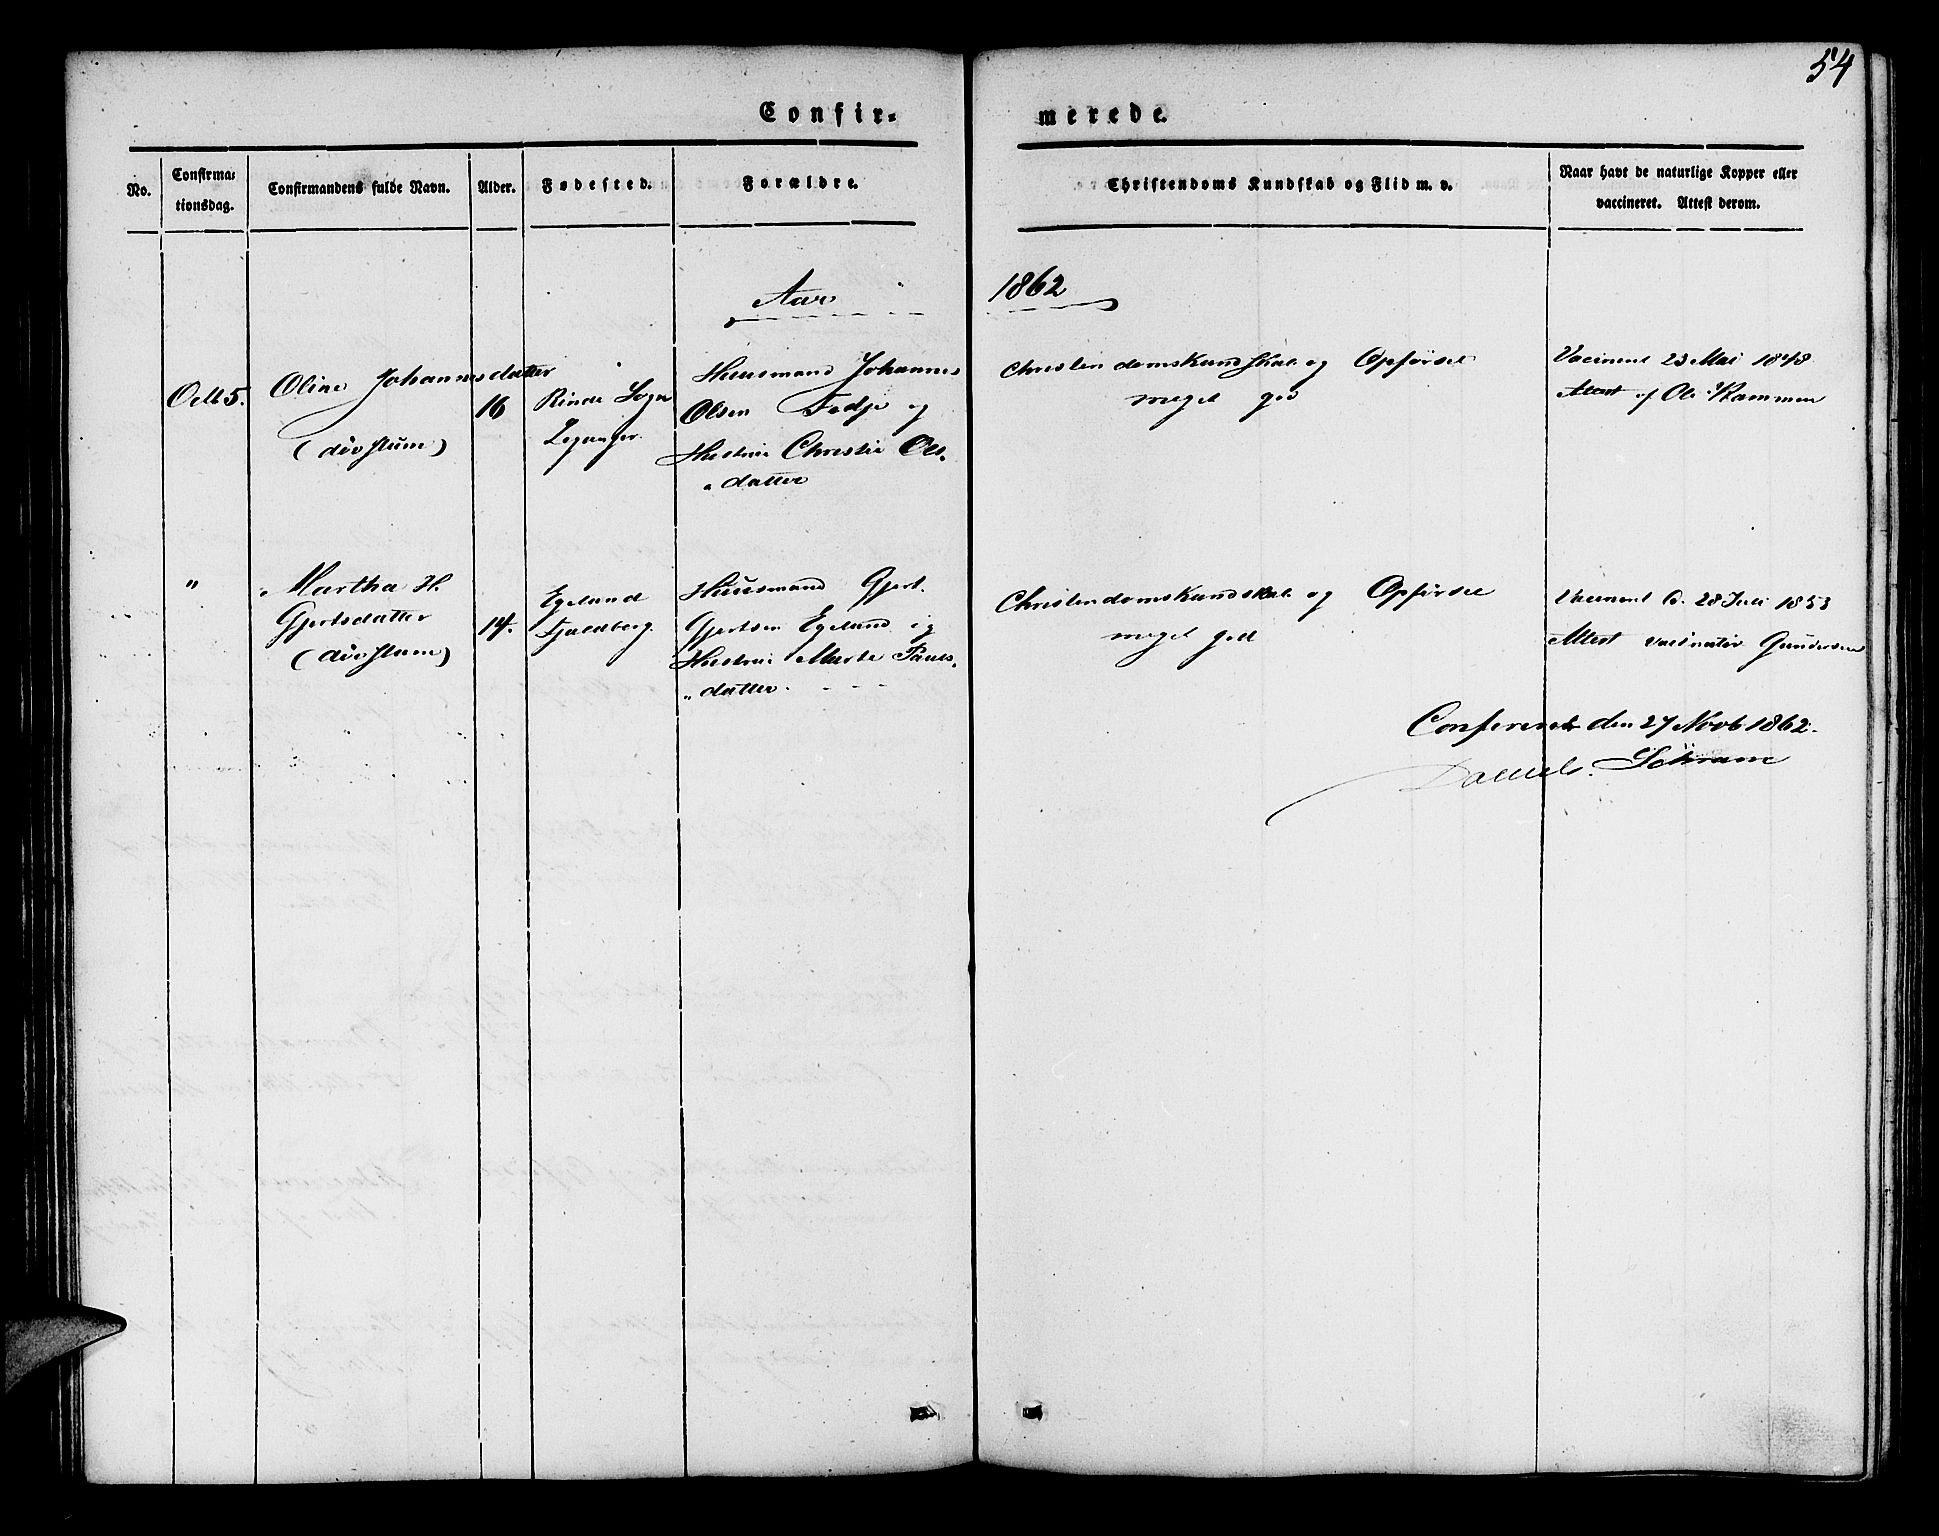 54
Confir-
merede.
No.
Confirma-
tionsdag.
Confirmandens fulde Navn.
Alder.
Fødested.
Forældre.
Christendoms Kundskab og Flid m. v.
Naar havt de naturlige Kopper eller
vaccineret. Attest derom.
Aar
1862
Octb 5.
Oline Johannesdatter
(døvstum)
16
Rinde Sogn
Leganger
Huusmand Johannes
Olsen Fedje og
Hustrue Christie Ols-
datter
Christendomskundskab og Opførsel
meget god
Vaccineret 23 Mai 1848
Attest af Ole Rommen
"
Martha H.
Gjertsdatter
(døvstum)
14.
Egeland
Fjeldberg.
Huusmand Gjert
Gjertsen Egeland og
Hustrue Marte Pauls-
datter.
Christendomskundskab og Opførsel
meget god
Vaccineret d. 28 Juli 1853
Attest vaccinatør Gundersen
Confereret den 27 Novb 1862.
Schram